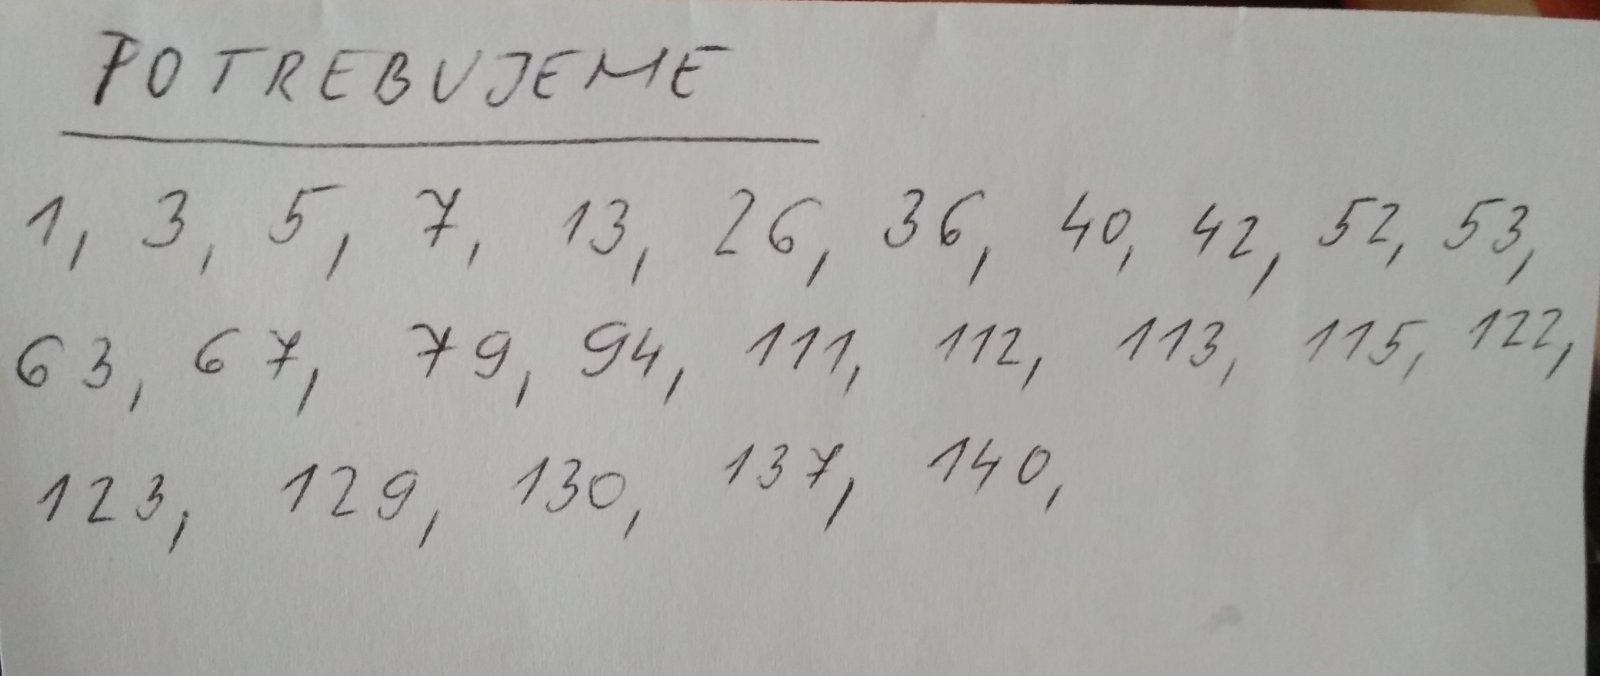 POTREBUJEME
1, 3, 5, 7, 13, 26, 36, 40, 42, 52, 53,
63, 67, 79, 94, 111, 112, 113, 115, 122,
123, 129, 130, 137, 140,